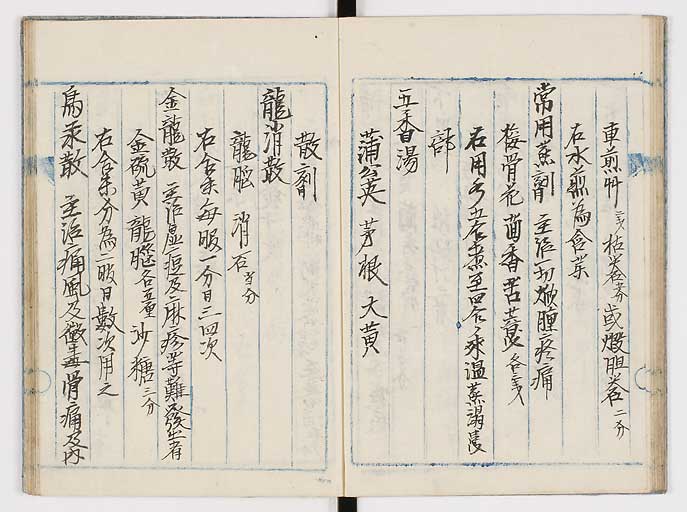 車前艸 枯 或 胆 二分
右水煎為含薬
常用蒸劑 主治一切焮腫疼痛
接骨花 茴香 苦薏 各
右用 五合煮至四合 乗温蒸溻
部
五香湯
蒲公英 茅根 大黄
散剤
龍消散
龍脳 消石 各等分
右合末毎服一分日三四次
金龍散 主治虚痘及麻疹等難發出者
金硫黄 龍脳 各五 沙糖 三分
右合末分為二服日數次用之
烏汞散 主治痛風及黴毒骨痛及